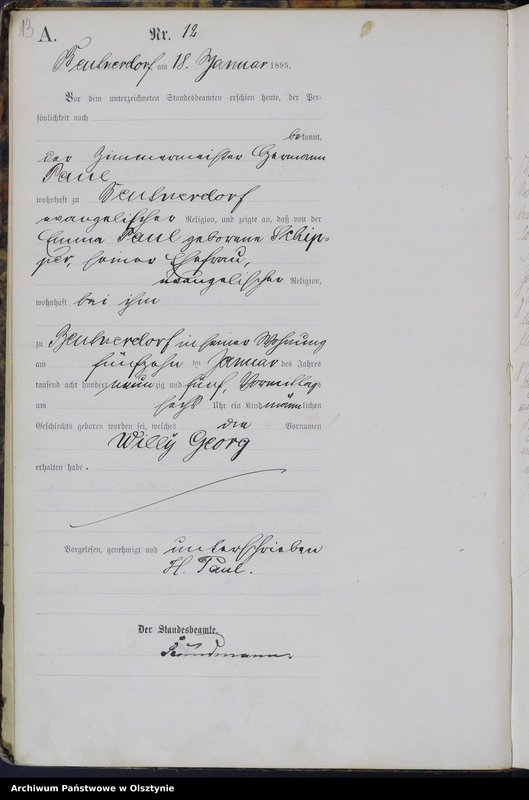 13
A. Nr. 12
Beutnerdorf am 18. Januar 1895.
Vor dem unterzeichneten Standesbeamten erschien heute, der Per-
sönlichkeit nach
bekannt,
der Zimmermeister Hermann
Paul
wohnhaft zu Beutnerdorf
evangelischer Religion, und zeigte an, daß von der
Emma Paul geborene Schip-
per, seiner Ehefrau,
evangelischer Religion,
wohnhaft bei ihm
zu Beutnerdorf in seiner Wohnung
am fünfzehn ten Januar des Jahres
tausend acht hundert neunzig und fünf, Vormittags
um sechs Uhr ein Kind männlichen
Geschlechts geboren worden sei, welches die Vornamen
Willy Georg
erhalten habe.
Vorgelesen, genehmigt und unterschrieben
H. Paul.
Der Standesbeamte.
Archiwum Państwowe w Olsztynie